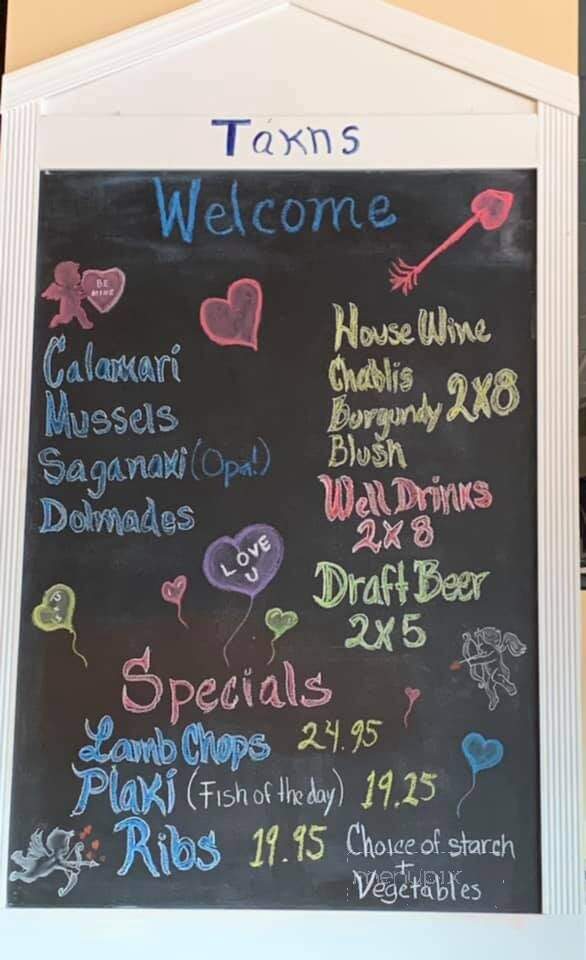 Takns
Welcome
BE
MINE
Calamari
Mussels
Saganaki (Opa!)
Dolmades
House Wine
Chablis
Burgundy 2X8
Blush
Well Drinks
2X8
Draft Beer
2X5
LOVE
U
Specials
Lamb Chops 24.95
Plaki (Fish of the day) 19.25
Ribs 19.95 Choice of starch
+
Vegetables
menupix